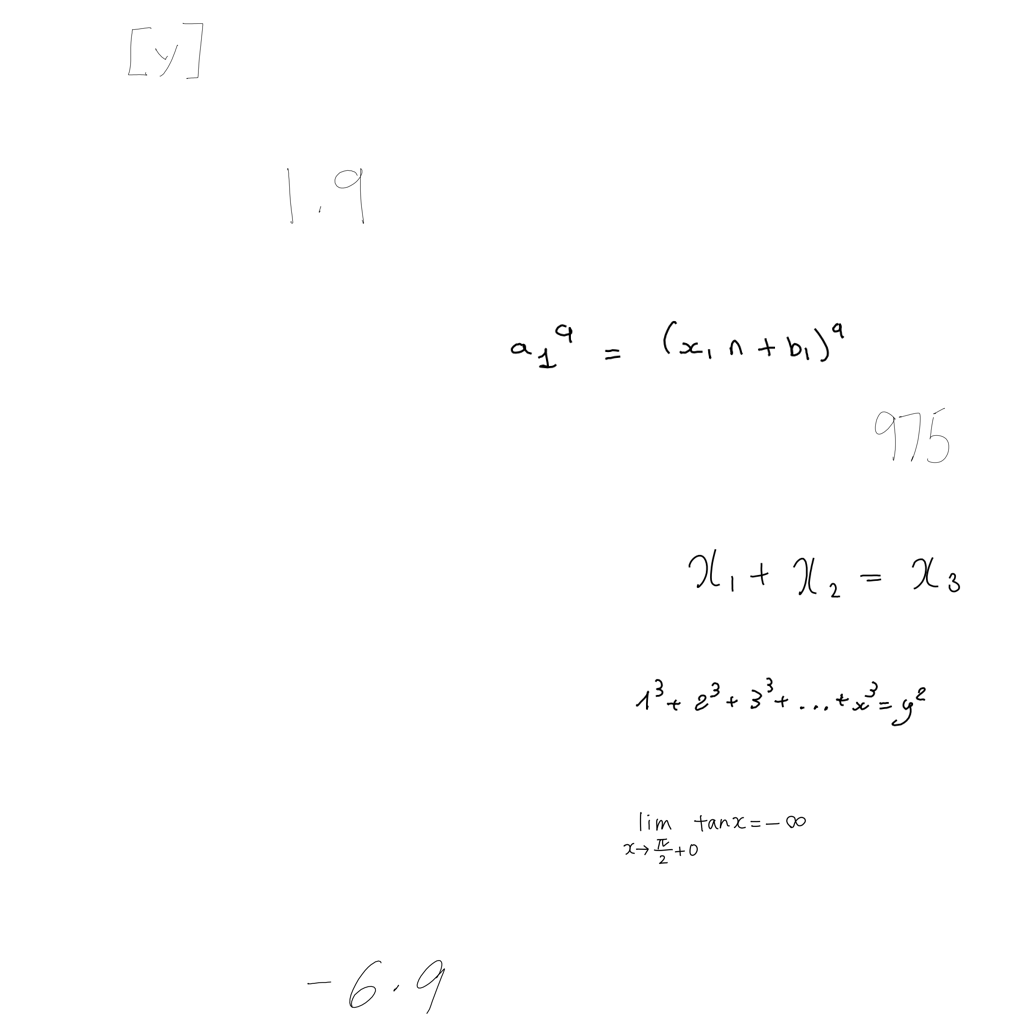 [y]
1.9
a₁^q = (x₁ n + b₁)^q
975
x₁ + x₂ = x₃
1³ + 2³ + 3³ + ... + x³ = y²
lim_{x→π/2+0} tan x = -∞
-6.9